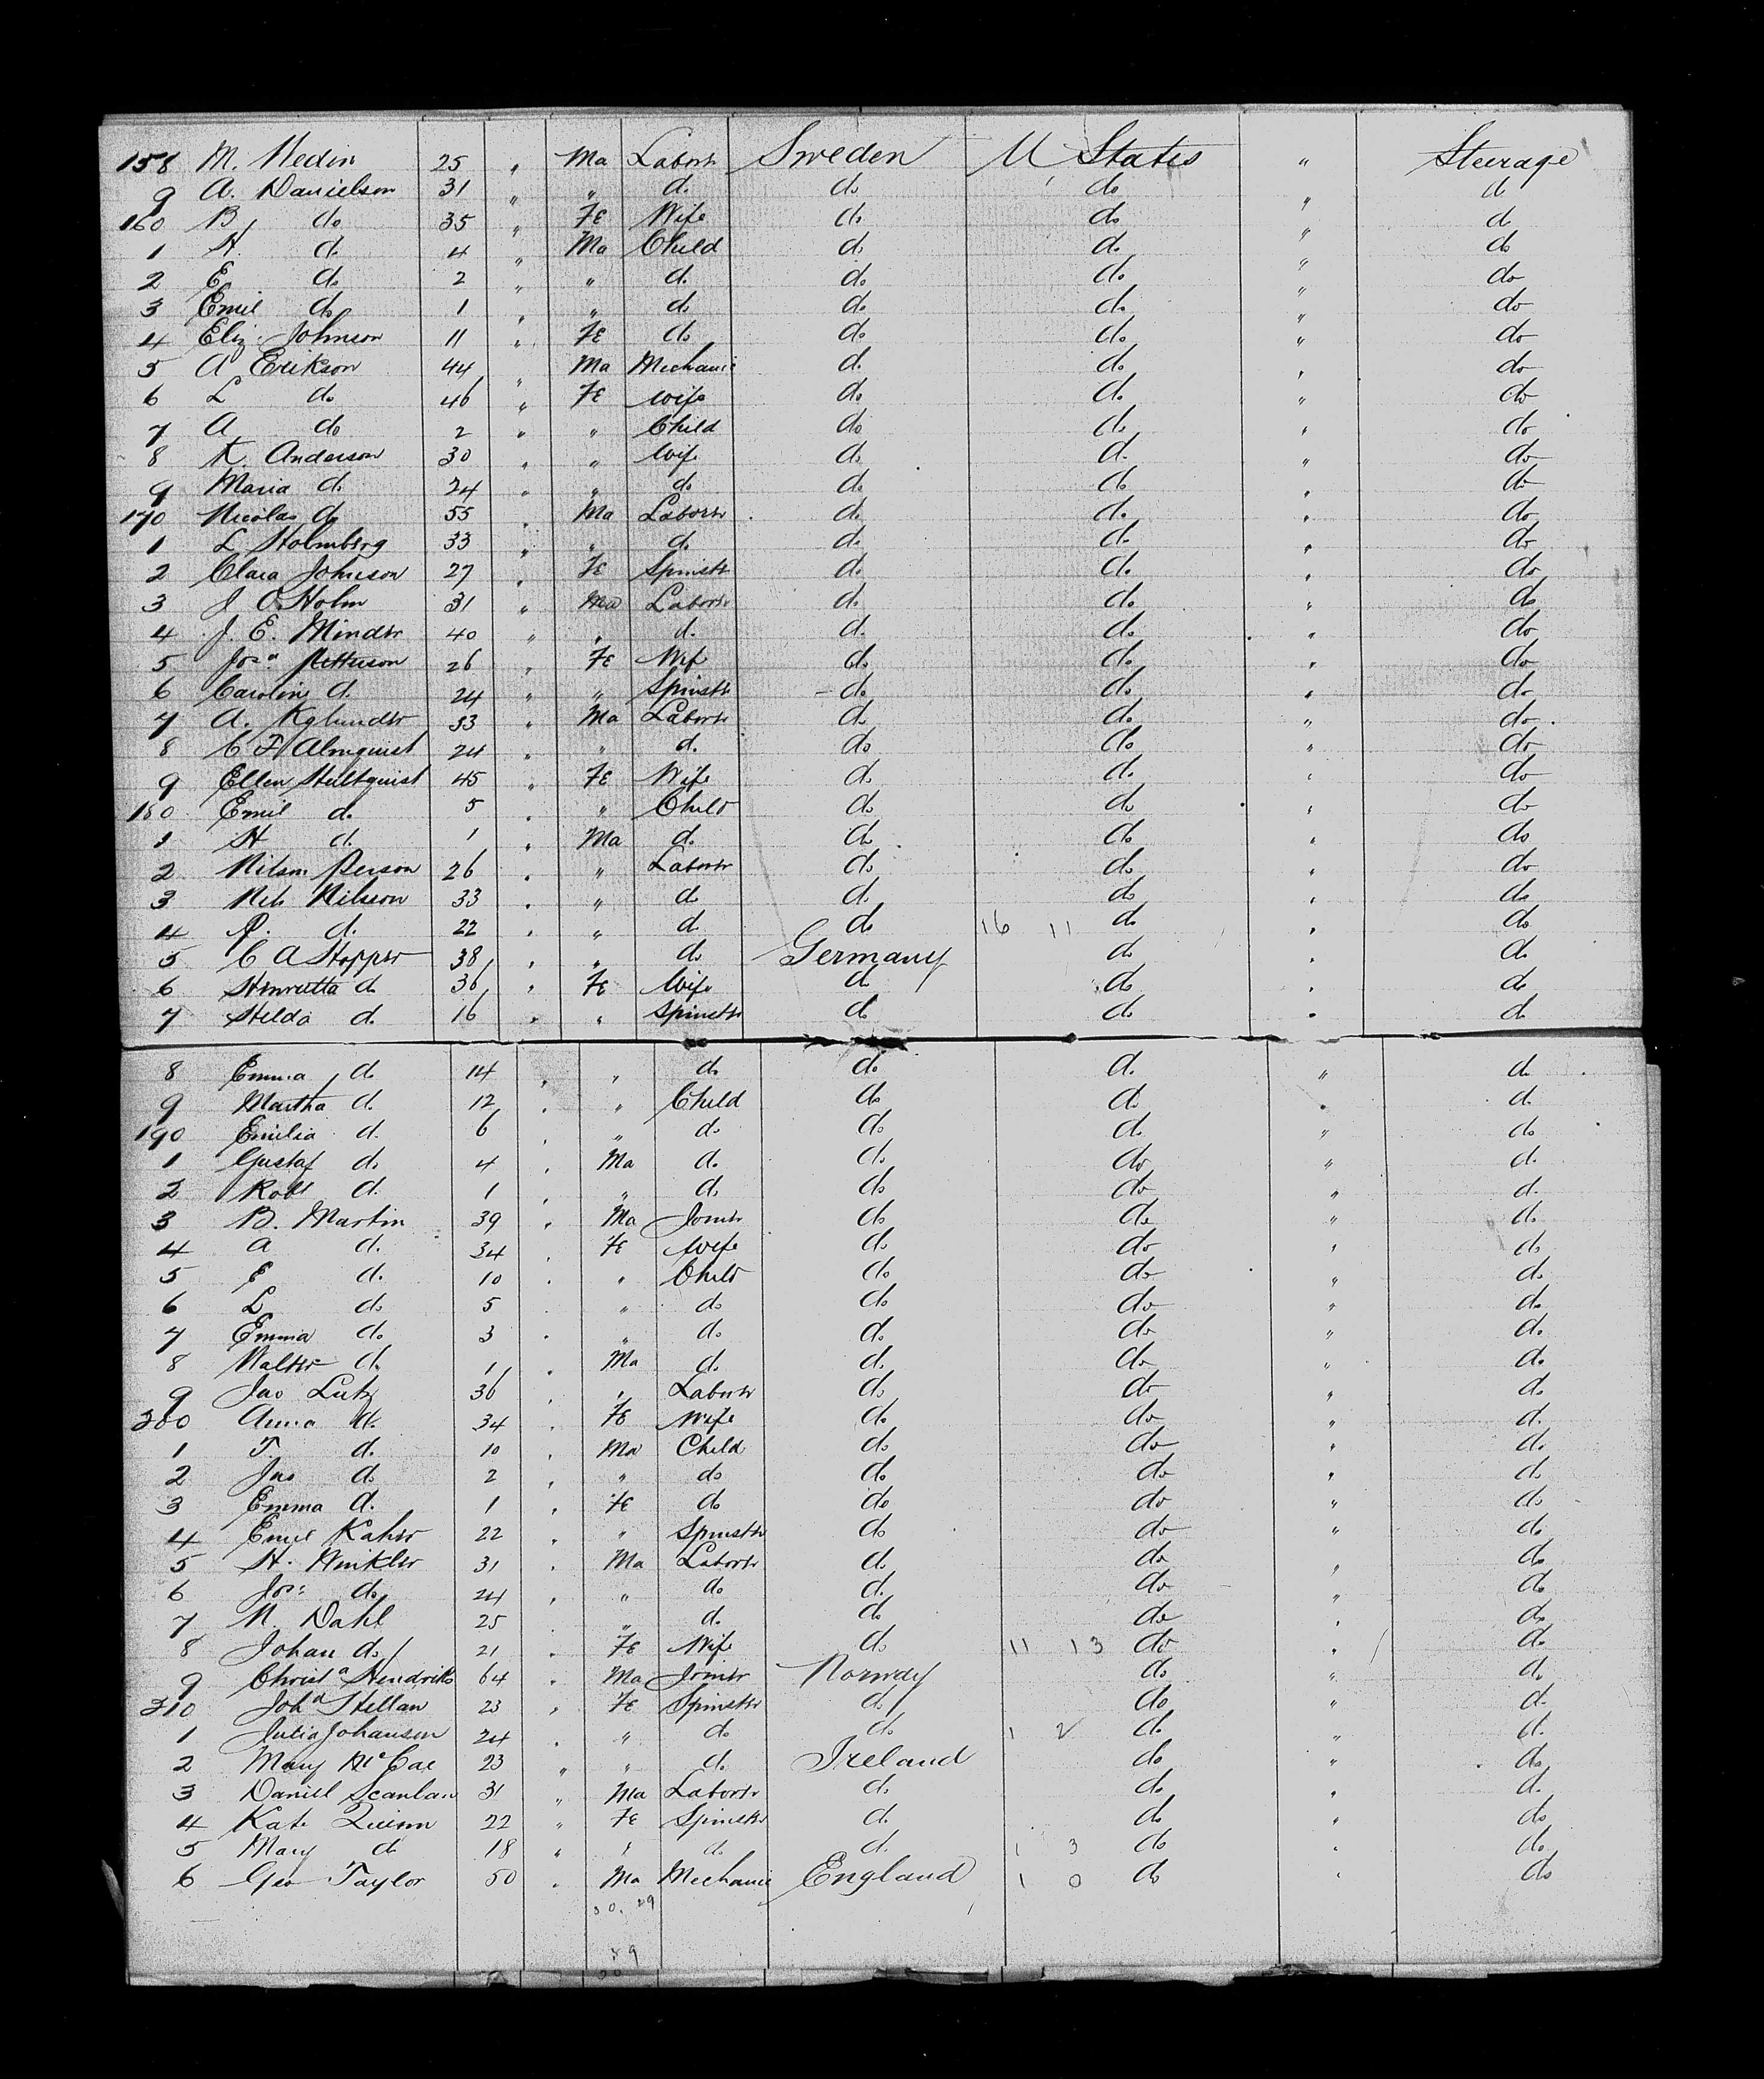 158 M. Hedin 25 " Ma Laborr Sweden U States " Steerage
9 A. Danielson 31 " " do do do " do
160 B do 35 " Fe Wife do do " do
1 H. do 4 " Ma Child do do " do
2 E do 2 " " do do do " do
3 Emil do 1 " " do do do " do
4 Eliz. Johnson 11 " Fe do do do " do
5 A Erikson 44 " Ma Mechanic do do " do
6 L do 46 " Fe wife do do " do
7 A do 2 " " Child do do " do
8 K. Anderson 30 " " Wife do do " do
9 Maria do 24 " " do do do " do
170 Nicolas do 55 " Ma Laborr do do " do
1 L Holmberg 33 " " do do do " do
2 Clara Johnson 27 " Fe Spinstr do do " do
3 J. O Holm 31 " Ma Laborr do do " do
4 J. E. Minder 40 " " do do do " do
5 Josa Petterson 26 " Fe Wif do do " do
6 Caroline do 24 " " Spinstr do do " do
7 A. 33 " Ma Laborr do do " do
8 C F Almquist 24 " " do do do " do
9 Ellen Hultquist 45 " Fe Wife do do " do
180 Emil do 5 " " Child do do " do
1 H do 1 " Ma do do do " do
2 Nilson Person 26 " " Laborr do do " do
3 Nels Nilsson 33 " " do do do " do
4 P. do 22 " " do do 16 11 do " do
5 C A Hopper 38 " " do Germany do " do
6 Henrietta do 36 " Fe Wife do do " do
7 Helda do 16 " " Spinstr do do " do
8 Emma do 14 " " do do do " do
9 Martha do 12 " " Child do do " do
190 Emilia do 6 " " do do do " do
1 Gustaf do 4 " Ma do do do " do
2 Robt do 1 " " do do do " do
3 B. Martin 39 " Ma Joiner do do " do
4 A do 34 " Fe Wife do do " do
5 E do 10 " " Child do do " do
6 L do 5 " " do do do " do
7 Emma do 3 " " do do do " do
8 Walter do 1 " Ma do do do " do
9 Jno Lutz 36 " " Laborr do do " do
200 Anna do 34 " Fe Wife do do " do
1 T. do 10 " Ma Child do do " do
2 Jno do 2 " " do do do " do
3 Emma do 1 " Fe do do do " do
4 Emil Kaher 22 " " Spinstr do do " do
5 H. Winkler 31 " Ma Laborr do do " do
6 Jos: do 24 " " do do do " do
7 N. Dahl 25 " " do do do " do
8 Johan do 21 " Fe Wife do 11 13 do " do
9 Christa Hendriks 64 " Ma Joiner Norway do " do
210 Joha Stellan 23 " Fe Spinstr do do " do
1 Julia Johanson 24 " " do do 1 2 do " do
2 Mary McCae 23 " " do Ireland do " do
3 Daniel Scanlan 31 " Ma Laborr do do " do
4 Kate Quinn 22 " Fe Spinstr do do " do
5 Mary do 18 " " do do 1 3 do " do
6 Geo Taylor 50 " Ma Mechanic England 1 0 do " do
30. 29